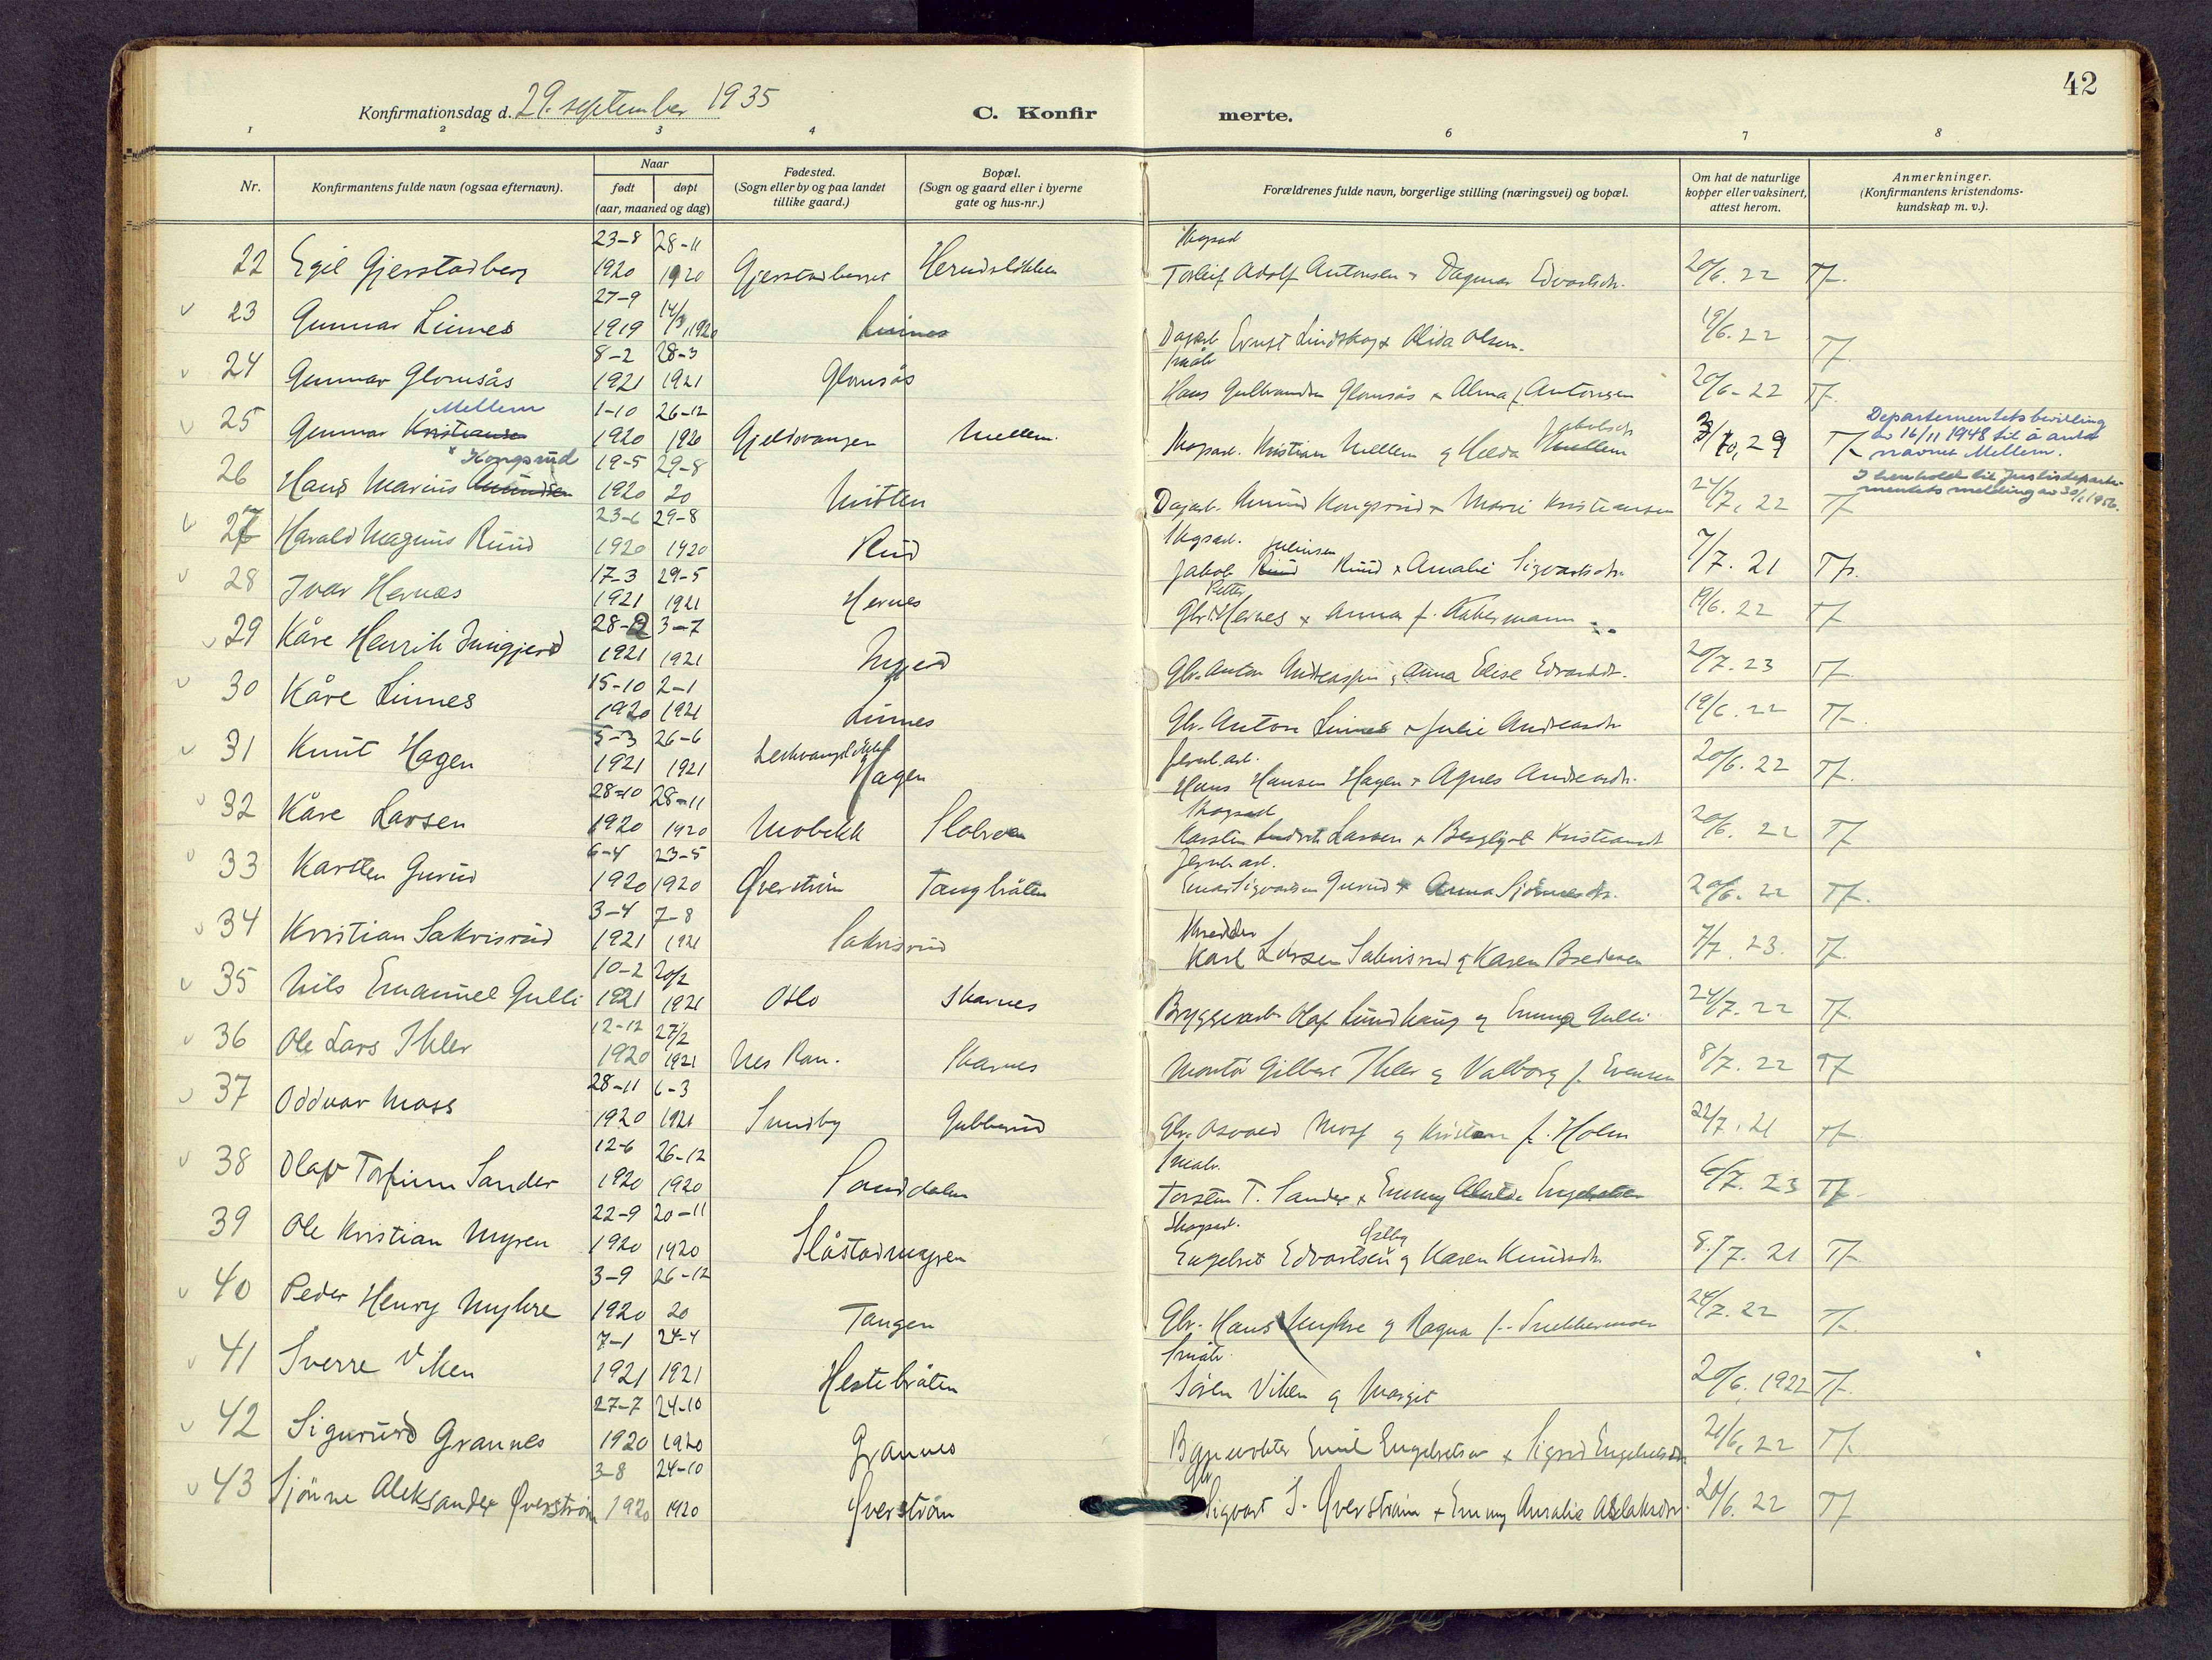 42
Konfirmationsdag d. 29. september 1935
C. Konfirmerte.
1 2 3 4 6 7 8
Nr.
Konfirmantens fulde navn (ogsaa efternavn).
Naar
født døpt
(aar, maaned og dag)
Fødested.
(Sogn eller by og paa landet
tillike gaard.)
Bopæl.
(Sogn og gaard eller i byerne
gate og hus-nr.)
Forældrenes fulde navn, borgerlige stilling (næringsvei) og bopæl.
Om hat de naturlige
kopper eller vaksinert,
attest herom.
Anmerkninger.
(Konfirmantens kristendoms-
kundskap m. v.).
23-8 28-11 Skogsarb.
22 Egil Gjerstadberg 1920 1920 Gjerstadberget Torleif Adolf Antonsen Dagmar 20/6. 22 Tf.
27-9 14/3 1920
23 Gunnar Linnes 1919 Linnes Dagarb. Ernst Lindskog x Alida Olsen. 19/6. 22 Tf.
8-2 28-3 Småbr.
24 Gunnar Glomsås 1921 1921 Glomsås Hans Gulbrandsen Glomsås x Alma f. Antonsen 20/6-22 Tf.
Mellem 1-10 26-12 Jakobsdtr.
25 Gunnar Kristiansen 1920 1920 Gjeldvangen Mellem. Skogsarb. Kristian Mellem og Hilda Mellem 3/10, 29 Tf
Departementets bevilling
av 16/11 1948 til å anta
navnet Mellem.
x Kongsrud 19-5 29-8
26 Hans Marius Amundsen 1920 20 Dagarb. Amund Kongsrud x Marie Kristiansen 24/7, 22 Tf
I henhold til Justisdeparte-
mentets melding av 30/1 1956.
23-6 29-8 Skogsarb. Juliussen
27 Harald Magnus Ruud 1920 1920 Rud Jakob Ruud Ruud x Amalie Sigvartsdtr. 7/7. 21 Tf.
17-3 29-5 Petter
28 Ivar Hernes 1921 1921 Hernes Gbr. Hernes x Anna f. 19/6. 22 Tf
28-2 3-7
29 Kåre Henrik 1921 1921 Gbr. Anton Andreassen Anna Elise Edvardsdtr. 20/7. 23 Tf
15-10 2-1
30 Kåre Linnes 1920 1921 Linnes Gbr. Anton Linnes x Julie Andreasdtr. 19/6. 22 Tf.
5-3 26-6 Jernb.arb.
31 Knut Hagen 1921 1921 Hagen Hans Hansen Hagen x Agnes Andreasdtr. 20/6. 22 Tf.
28-10 28-11 Skogsarb
32 Kåre Larsen 1920 1920 Mobekk Karsten Ludvik Larsen x Bergljot Kristiansdt 20/6. 22 Tf
6-4 23-5 Jernb. arb.
33 Karsten Gurud 1920 1920 Øverstrøm Tangbråten Einar Sigvartsen Gurud x Anna 20/6. 22 Tf.
3-4 7-8 Skredder
34 Kristian Sakrisrud 1921 1921 Sakrisrud Karl Larsen Sakrisrud og Karen Bredesen 7/7. 23. Tf.
10-2 20/2
35 Nils Emanuel Gulli 1921 1921 Oslo Skarnes Bryggearb. Olaf Lundhaug og Emma Gulli 24/7. 22 Tf.
12-12 27/2
36 Ole Lars Ihler 1920 1921 Nes Rom. Skarnes Montør Gilbert Ihler og Valborg f. Evensen 8/7. 22 Tf
28-11 6-3
37 Oddvar Moss 1920 1921 Sundby Gubberud Gbr. Osvald Moss og Kristine f. Holm 22/7. 21 Tf.
12-6 26-12 Småbr.
38 Olav Torfinn Sander 1920 1920 Sanddalen Torstein T. Sander x Emmy Engebretsen 6/7. 23 Tf.
22-9 20-11 Skogsarb. Østby
39 Ole Kristian Myren 1920 1920 Slåstadmyren Engebret Edvartsen og Karen Knutsdtr. 8/7. 21 Tf.
3-9 26-12
40 Peder Henry Myhre 1920 20 Tangen Gbr. Hans Myhre og Ragna f. Snekkermoen 24/7. 22 Tf.
7-1 24-4 Småbr.
41 Sverre Viken 1921 1921 Hestebråten Søren Viken og Margit 20/6. 1922 Tf.
27-7 24-10
42 Sigurd Grannes 1920 1920 Grannes Banevokter Emil Engebretsen x Sigrid Engebretsdtr. 21/6, 22 Tf.
3-8 24-10 Gbr.
43 Sjønne Aleksander Øverstrøm 1920 1920 Øverstrøm Sigvart S. Øverstrøm x Emmy Amalie Aslaksdtr. 20/6. 22 Tf